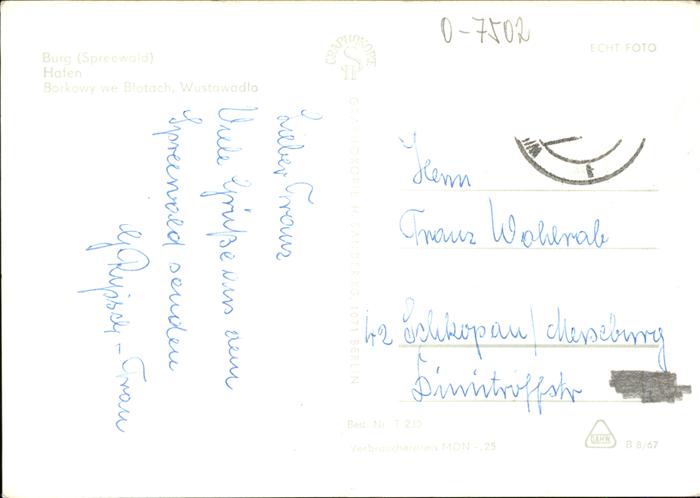 O-7502
Burg (Spreewald)
Hafen
Borkowy we Błotach, Wustawadło
ECHT FOTO
GRAPHOKOPIE
GRAPHOKOPIE H. SANDER KG, 1071 BERLIN
Lieber Franz
Viele Grüße aus dem
Spreewald senden
Frau
Herrn
Franz Wohlrab
42 Schkopau/Merseburg
Dimitroffstr
Best. Nr. T 210
Verbraucherpreis MDN -,25
B 8/67